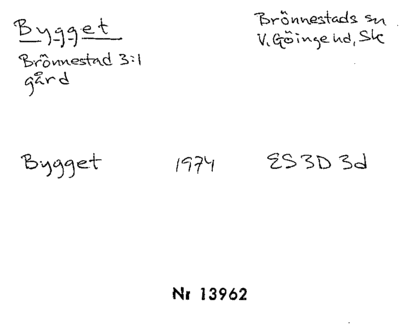 Bygget
Brönnestad 3:1
gård
Brönnestads sn
V. Göinge hd, Sk
Bygget 1974 ES 3D 3d
Nr 13962